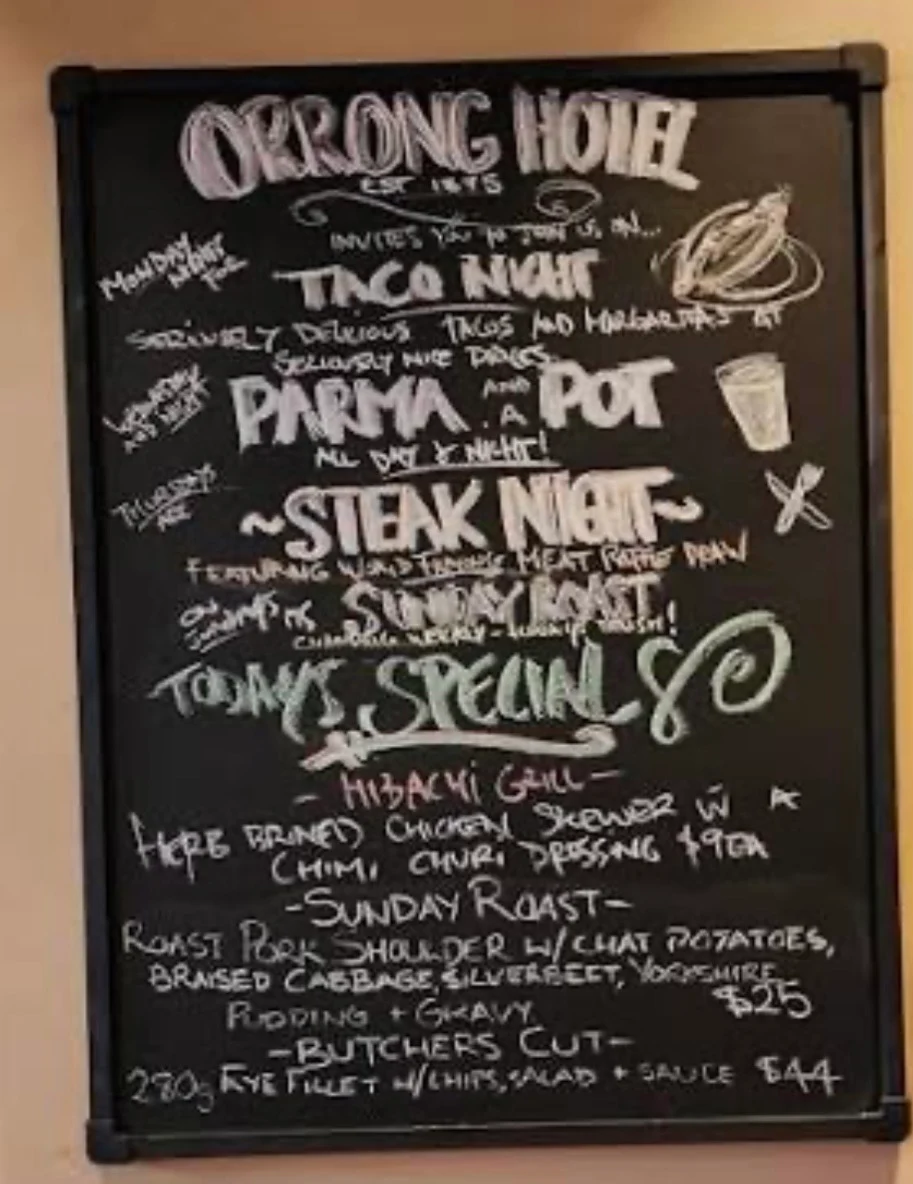 ORRONG HOTEL
EST 1875
INVITES YOU TO JOIN US ON...
MONDAY NIGHT FOR
TACO NIGHT
DELICIOUS TACOS AND MARGARITAS AT
SERIOUSLY NICE PRICES
AND NIGHT
PARMA AND A POT
ALL DAY & NIGHT!
THURSDAYS ARE
~STEAK NIGHT~
FEATURING WORLD FAMOUS MEAT RAFFLE DRAW
ON SUNDAYS ITS SUNDAY ROAST
CHANGING WEEKLY - ALWAYS
TODAYS SPECIALS
- HIBACHI GRILL -
HERB BRINED CHICKEN SKEWER W A
CHIMI CHURI DRESSING $9EA
-SUNDAY ROAST-
ROAST PORK SHOULDER W/ CHAT POTATOES,
BRAISED CABBAGE, SILVERBEET, YORKSHIRE
PUDDING + GRAVY $25
-BUTCHERS CUT-
280g EYE FILLET W/CHIPS, SALAD + SAUCE $44